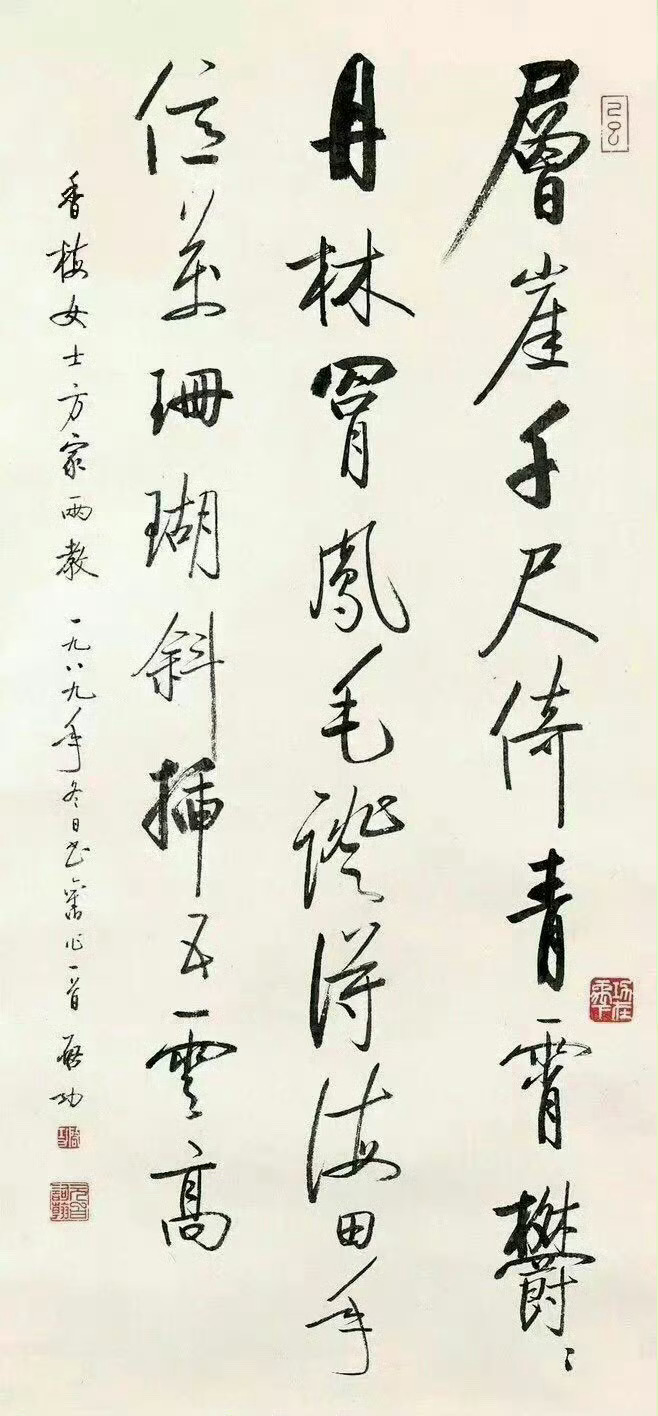 層崖千尺倚青霄鬱〻
丹林罥鳳毛證得海田年
位萬珊瑚斜插五雲高
香梅女士方家兩教 一九八九年冬日書舊作一首 啟功